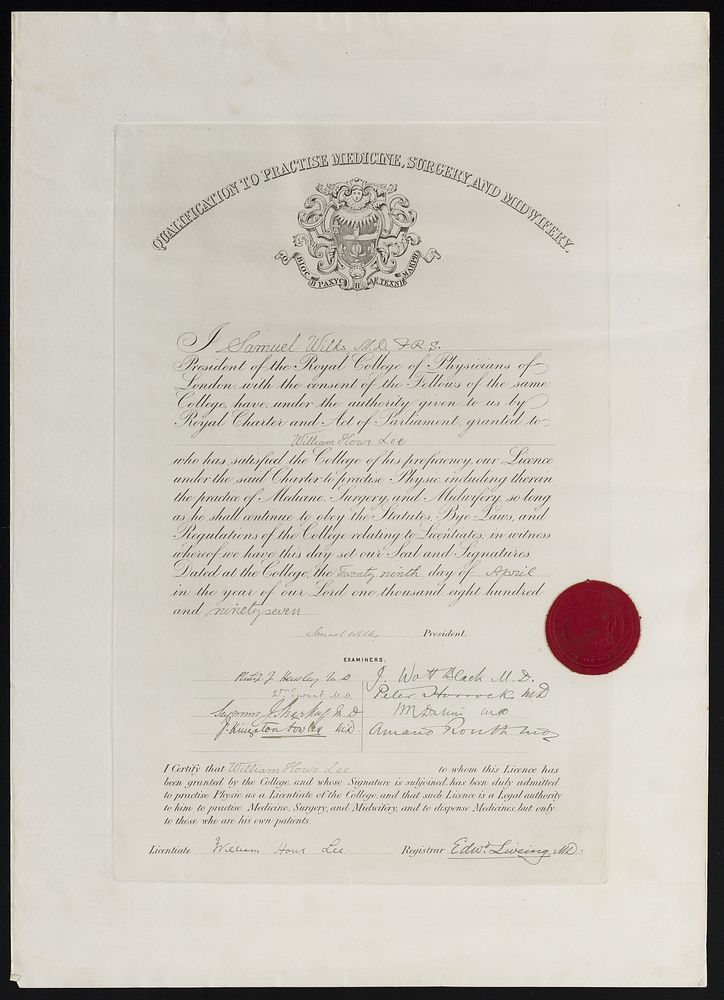 QUALIFICATION TO PRACTISE MEDICINE, SURGERY, AND MIDWIFERY.
I Samuel Wilks M.D, F.R.S.
President of the Royal College of Physicians of
London, with the consent of the Fellows of the same
College, have, under the authority given to us by
Royal Charter and Act of Parliament, granted to
William Howr Lee
who has satisfied the College of his proficiency, our Licence
under the said Charter to practise Physic, including therein
the practice of Medicine, Surgery, and Midwifery, so long
as he shall continue to obey the Statutes, Bye-Laws, and
Regulations of the College relating to Licentiates, in witness
whereof we have this day set our Seal and Signatures
Dated at the College, the twenty ninth day of April
in the year of our Lord one thousand eight hundred
and ninety seven
Samuel Wilks President.
EXAMINERS.
Philip J. Hensley M D
Wm Ewart M.D.
Seymour J. Sharkey M.D
J. Kingston Fowler M.D.
J. Watt Black M.D.
Peter Horrocks MD
MD
Amand Routh MD
I Certify that William Howr Lee to whom this Licence has
been granted by the College, and whose Signature is subjoined, has been duly admitted
to practise Physic as a Licentiate of the College, and that such Licence is a Legal authority
to him to practise Medicine, Surgery, and Midwifery, and to dispense Medicines, but only
to those who are his own patients.
Licentiate William Howr Lee. Registrar Edwd. Liveing, MD.